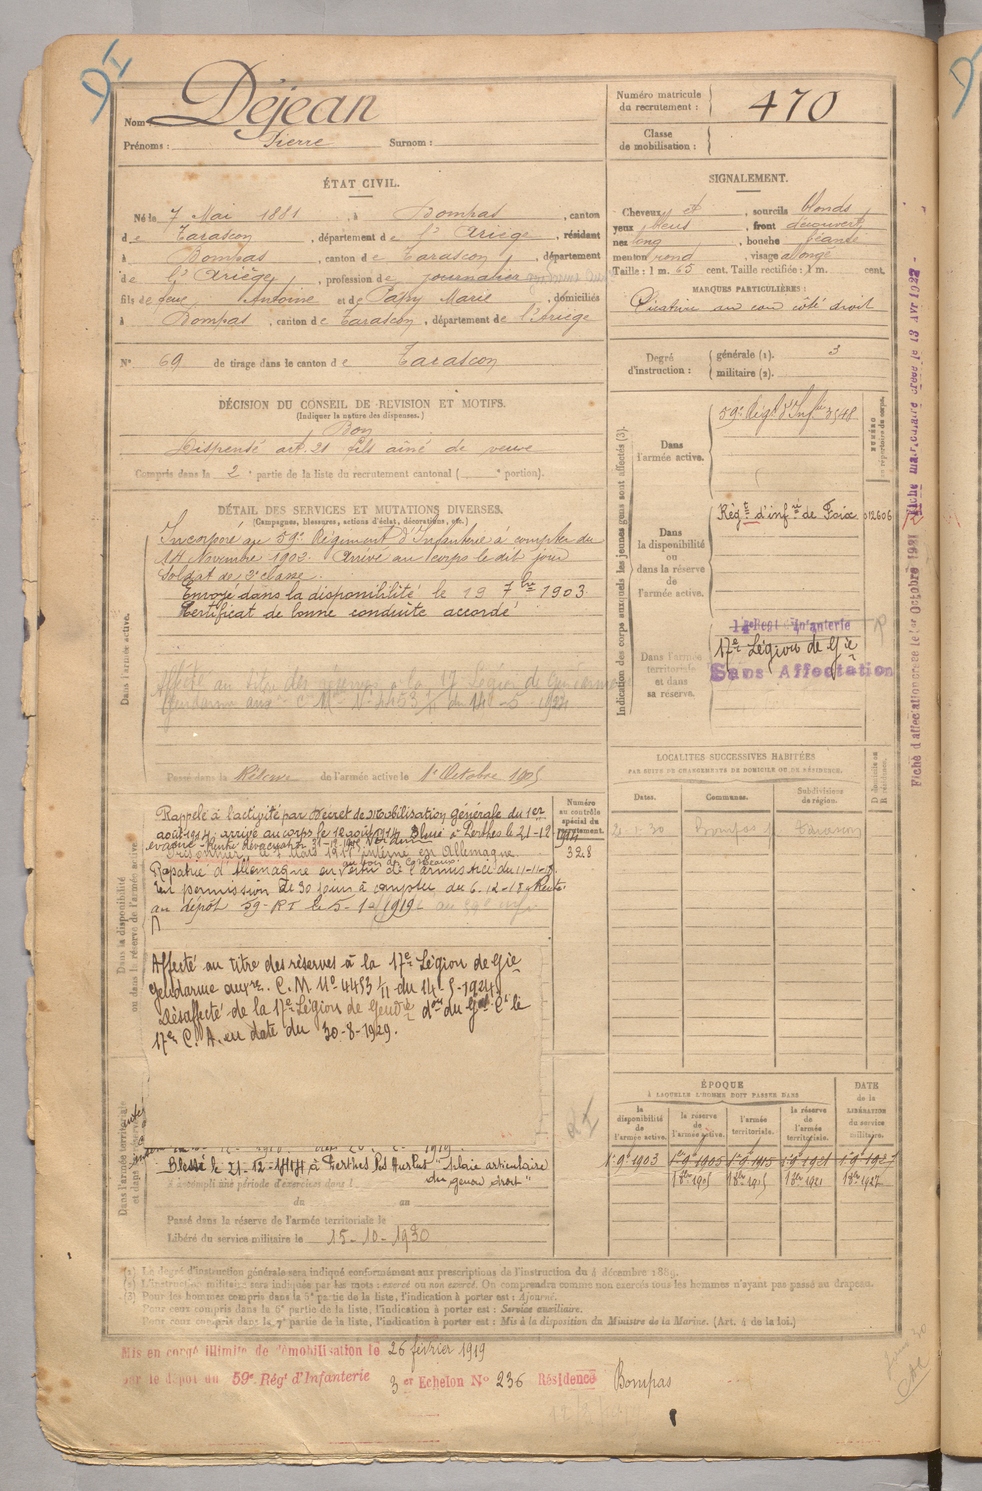 Nom : Déjean
Prénoms : Pierre Surnom :
Numéro matricule du recrutement : 470
Classe de mobilisation :
ÉTAT CIVIL.
Né le 7 Mai 1881, à Bompas, canton
de Tarascon, département de l'Ariège, résidant
à Bompas, canton de Tarascon, département
de l'Ariège, profession de journalier
fils de feu Antoine et de Papy Marie, domiciliés
à Bompas, canton de Tarascon, département de l'Ariège
N° 69 de tirage dans le canton de Tarascon
SIGNALEMENT.
Cheveux et, sourcils blonds
yeux bleus, front découvert
nez long, bouche béante
menton rond, visage allongé
Taille : 1 m. 65 cent. Taille rectifiée : 1 m. cent.
MARQUES PARTICULIÈRES :
Cicatrice au cou côté droit
Degré d'instruction : générale (1). 3
militaire (2).
DÉCISION DU CONSEIL DE REVISION ET MOTIFS.
(Indiquer la nature des dispenses.)
Bon
Dispensé art. 21 fils aîné de veuve
Compris dans la 2e partie de la liste du recrutement cantonal ( e portion).
DÉTAIL DES SERVICES ET MUTATIONS DIVERSES.
(Campagnes, blessures, actions d'éclat, décorations, etc.)
Dans l'armée active.
Incorporé au 59e Régiment d'Infanterie à compter du
14 Novembre 1902. Arrivé au corps le dit jour
Soldat de 2e classe.
Envoyé dans la disponibilité le 19 7bre 1903
Certificat de bonne conduite accordé
Affecté au titre des réserves à la 17e Légion de Gendarmerie
Gendarme C. M. N° 4453 du 14-5-1924
Passé dans la Réserve de l'armée active le 1er Octobre 1905
Indication des corps auxquels les jeunes gens sont affectés (3).
NUMÉRO au répertoire du corps.
Dans l'armée active. 59e Régt d'Infrie 3548
Dans la disponibilité ou dans la réserve de l'armée active. Régt d'infrie de Foix 012606
Dans l'armée territoriale et dans sa réserve. Régt Infanterie
17e Légion de Gie
Sans Affectation
Fiche matriculaire créée le 13 Avr 1922 -
Fiche d'affectation créée le 1er Octobre 1921
Dans la disponibilité ou dans la réserve de l'armée active.
Rappelé à l'activité par Décret de Mobilisation générale du 1er
août 1914, arrivé au corps le 12 août 1914 Blessé à Perthes le 21-12-1914
évacué
Prisonnier interné en Allemagne.
Rapatrié d'Allemagne en vertu de l'armistice du 11-11-18
En permission de 30 jours à compter du 6-12-18 Rentré
au dépôt 59e RI le 5-1-1919
Numéro au contrôle spécial du recrutement.
328
Affecté au titre des réserves à la 17e Légion de Gie
Gendarme auxre. C. M. N° 4453 /11 du 14-5-1924
Désaffecté de la 17e Légion de Gendrie don du Gal Ct le
17e C. A. en date du 30-8-1929.
LOCALITÉS SUCCESSIVES HABITÉES
PAR SUITE DE CHANGEMENTS DE DOMICILE OU DE RÉSIDENCE.
Dates. Communes. Subdivisions de région. D domicile ou R résidence.
2-1-30 Bompas Tarascon
ÉPOQUE
À LAQUELLE L'HOMME DOIT PASSER DANS
la disponibilité de l'armée active. la réserve de l'armée active. l'armée territoriale. la réserve de l'armée territoriale.
DATE de la LIBÉRATION du service militaire.
1er 9bre 1903 1er 9bre 1905 1er 9bre 1915 1er 9bre 1921 1er 9bre 1927
1 8bre 1905 1 8bre 1915 1 8bre 1921 1 8bre 1927
Dans l'armée territoriale et dans sa réserve.
Blessé le 21-12-1914 à Perthes les Hurlus "Plaie articulaire
du genou droit"
A accompli une période d'exercices dans l
du au
Passé dans la réserve de l'armée territoriale le
Libéré du service militaire le 15-10-1930
(1) Le degré d'instruction générale sera indiqué conformément aux prescriptions de l'instruction du 4 décembre 1889.
(2) L'instruction militaire sera indiquée par les mots : exercé ou non exercé. On comprendra comme non exercés tous les hommes n'ayant pas passé au drapeau.
(3) Pour les hommes compris dans la 5e partie de la liste, l'indication à porter est : Ajourné.
Pour ceux compris dans la 6e partie de la liste, l'indication à porter est : Service auxiliaire.
Pour ceux compris dans la 7e partie de la liste, l'indication à porter est : Mis à la disposition du Ministre de la Marine. (Art. 4 de la loi.)
Mis en congé illimité de démobilisation le 26 février 1919
par le dépôt du 59e Régt d'Infanterie 3er Echelon N° 236 Résidence Bompas